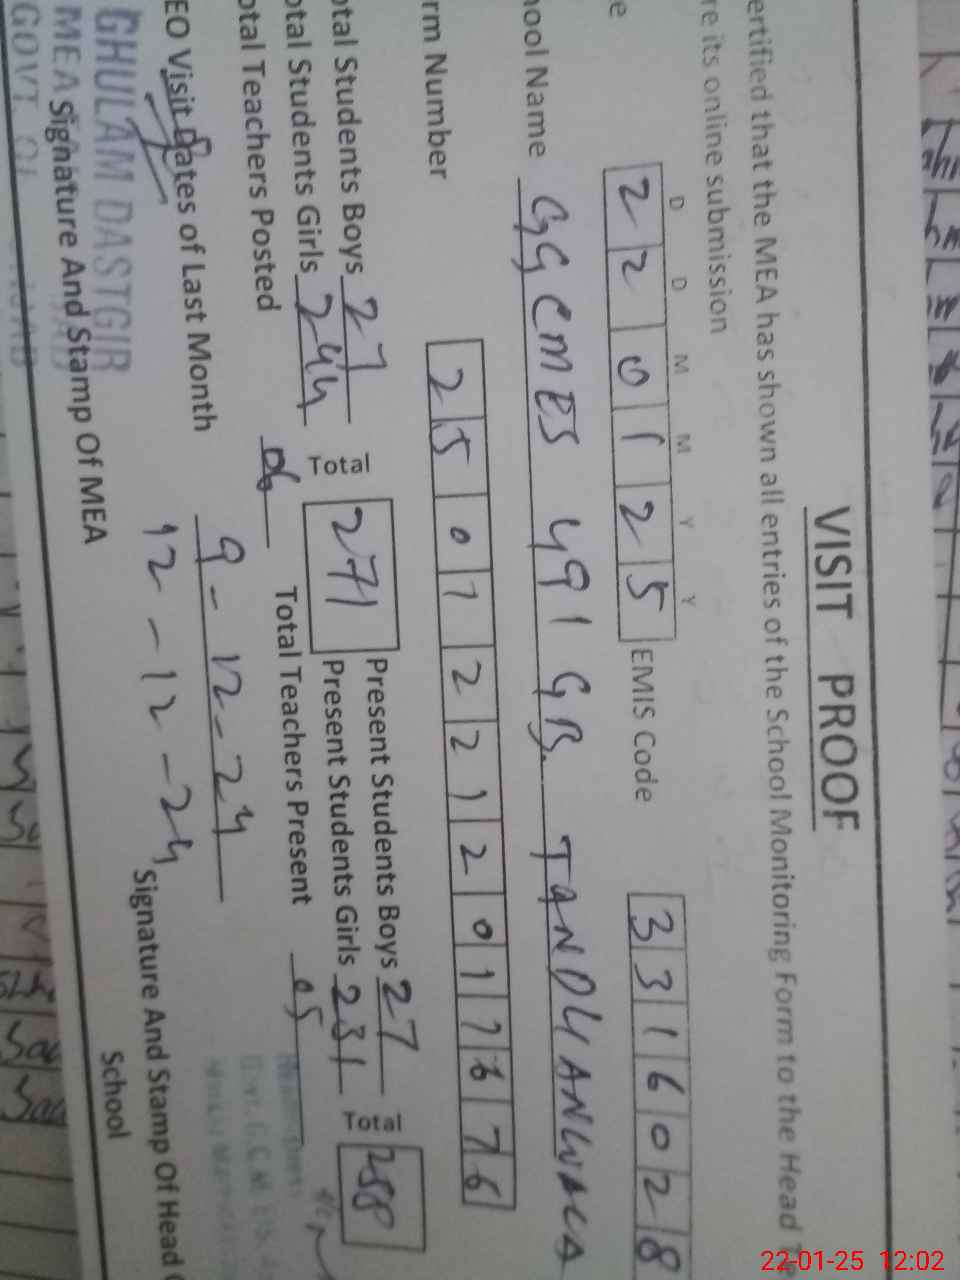 VISIT PROOF
ertified that the MEA has shown all entries of the School Monitoring Form to the Head
re its online submission
D D M M Y Y
e 2 2 0 1 2 5 EMIS Code 3 3 1 6 0 2 8
hool Name GGCMES 491 GB. TANDLIANWALA
rm Number 2 5 0 1 2 2 1 2 0 1 7 6 7 6
otal Students Boys 27 Total 271 Present Students Boys 27 Total 258
otal Students Girls 244 Present Students Girls 231
otal Teachers Posted 06 Total Teachers Present 05
EO Visit Dates of Last Month 9-12-24
12-12-24
GHULAM DASTGIR
MEA
Signature And Stamp Of MEA
Signature And Stamp Of Head
School
GOVT OF
22-01-25 12:02